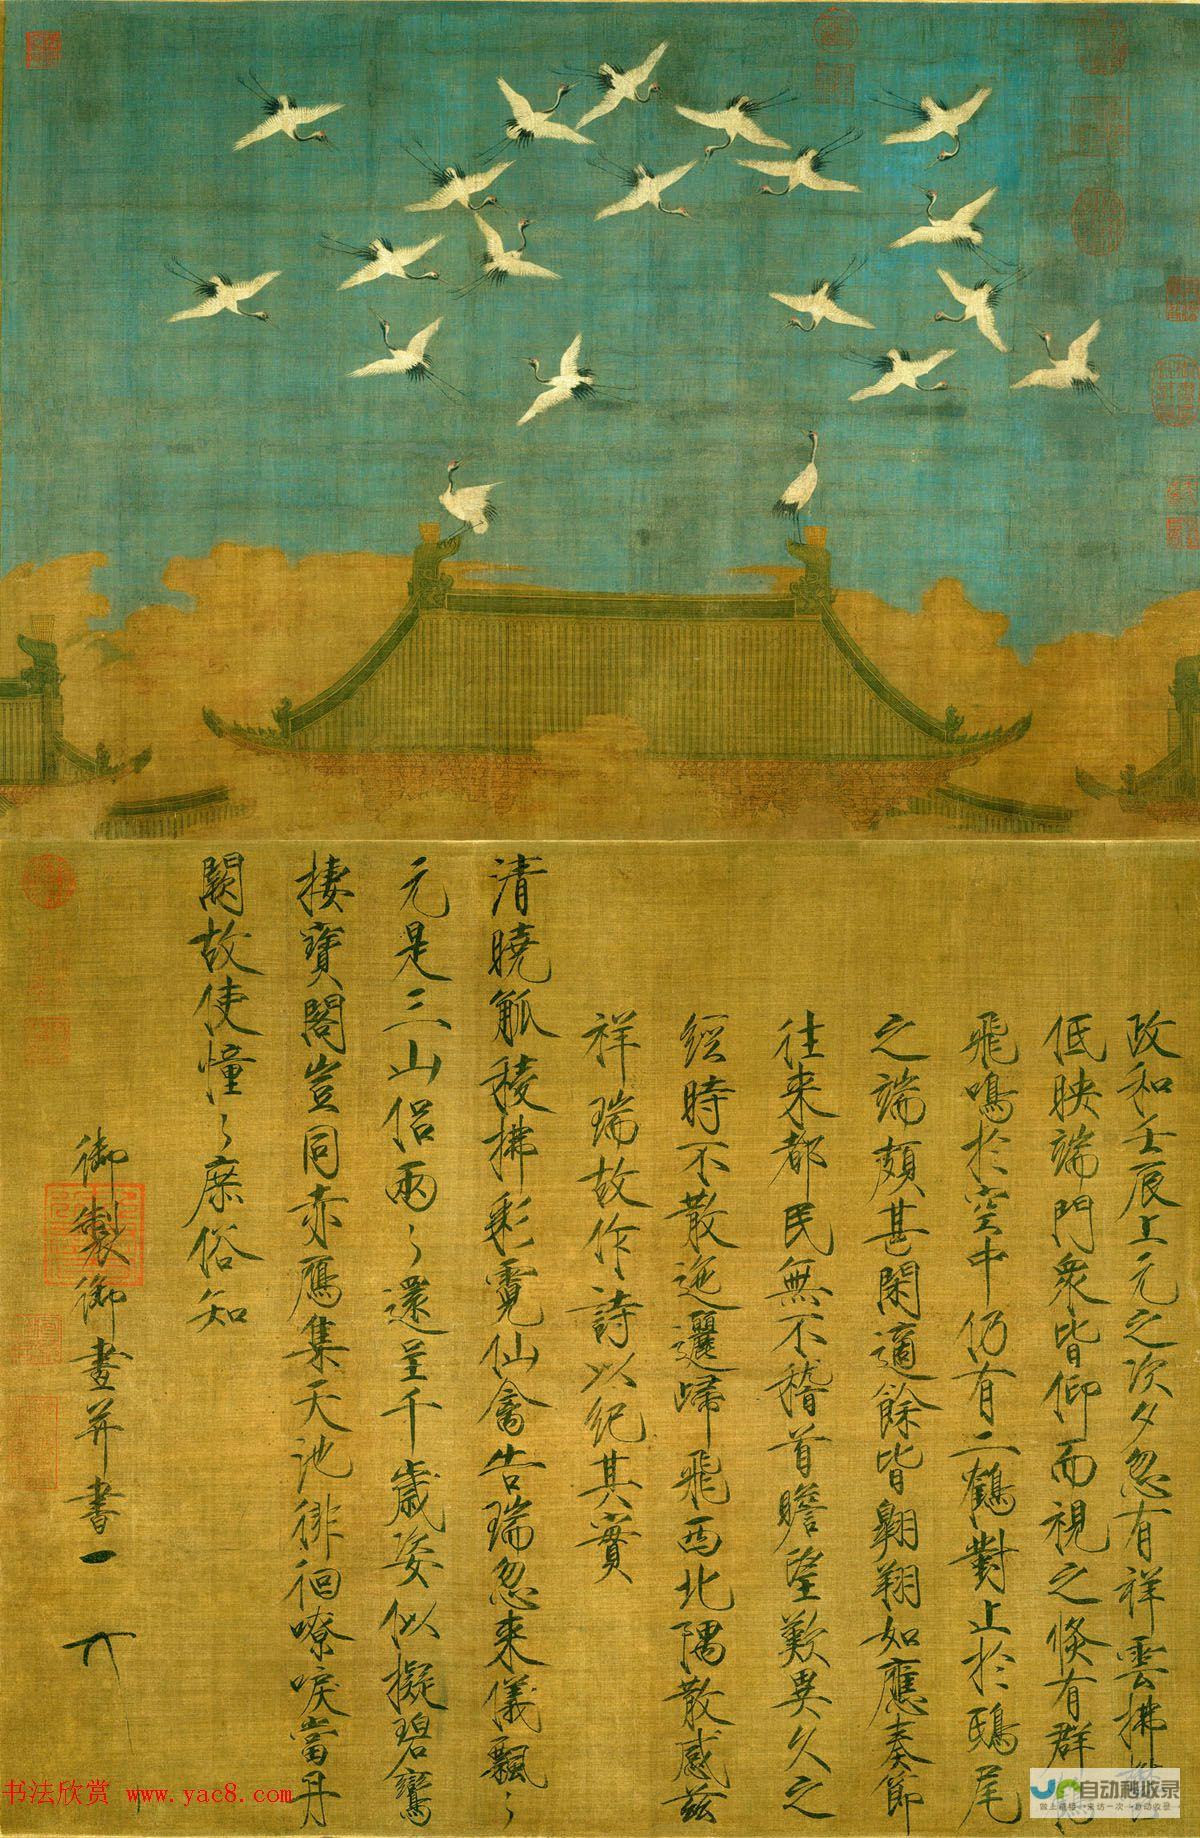 政和壬辰上元之次夕忽有祥雲拂
低映端門衆皆仰而視之倏有群
飛鳴於空中仍有二鶴對止於鴟尾
之端頗甚閑適餘皆翱翔如應奏節
往來都民無不稽首瞻望歎異久之
經時不散迤邐歸飛西北隅散感茲
祥瑞故作詩以紀其實
清曉觚稜拂彩霓仙禽告瑞忽來儀飄々
元是三山侶兩々還呈千歲姿似擬碧鸞
棲寶閣豈同赤鴈集天池徘徊嘹唳當丹
闕故使憧々庶俗知
御製御畫并書
书法欣赏 www.yac8.com
自动秒收录
做上链接→来访一次→自动收录